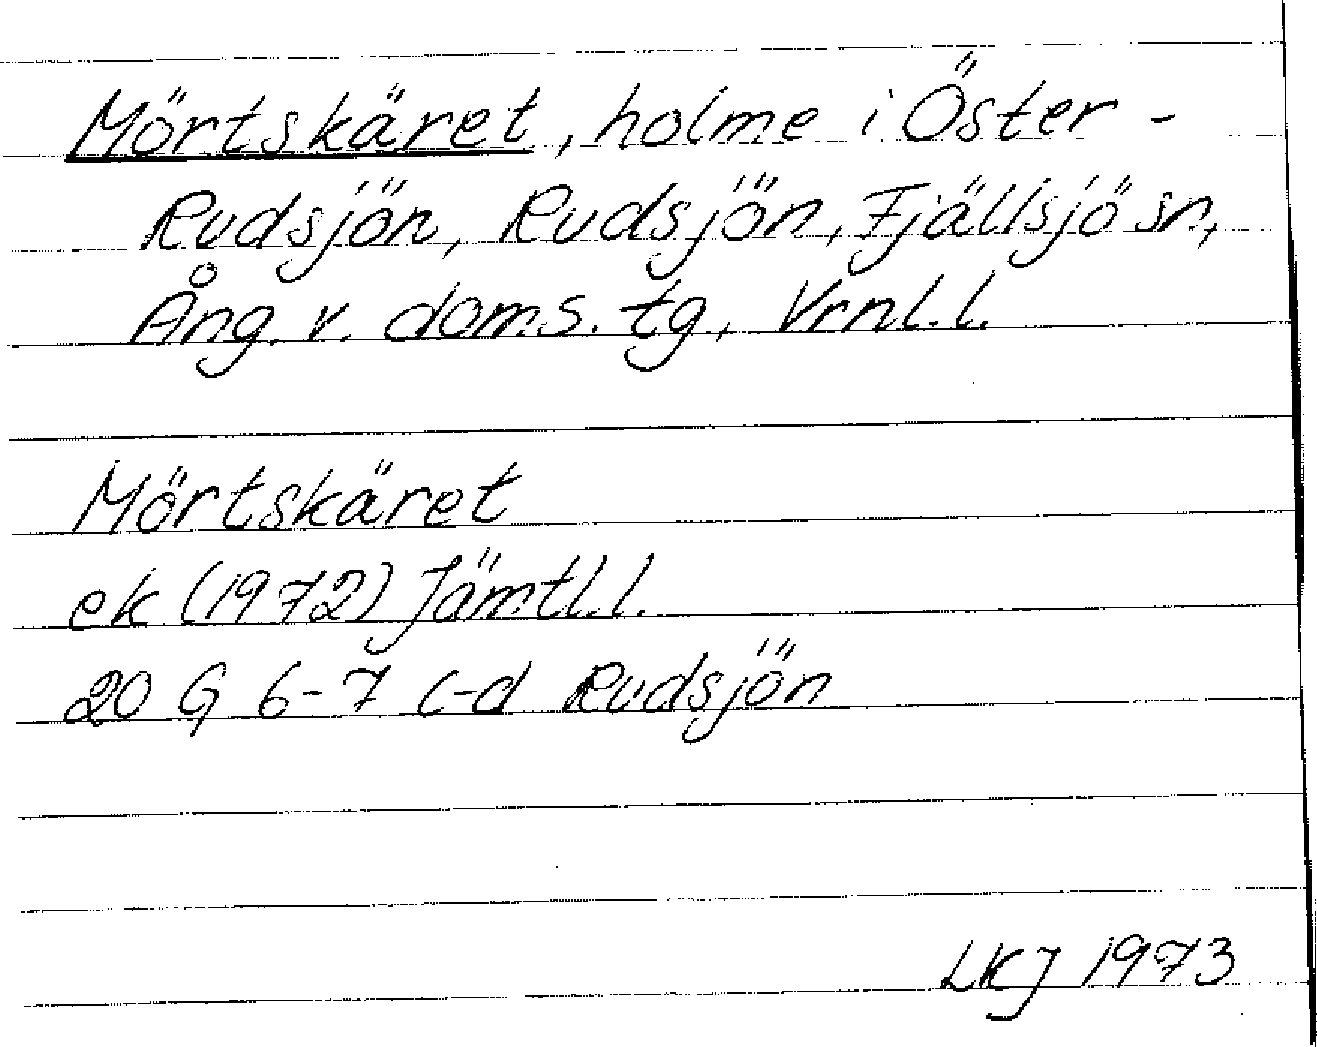 Mörtskäret, holme i Öster-
Rudsjön, Rudsjön, Fjällsjö sn,
Ång. v. doms. tg, Vrnl. l.
Mörtskäret
ek (1972) Jämtl. l.
20 G 6-7 c-d Rudsjön
LKJ 1973